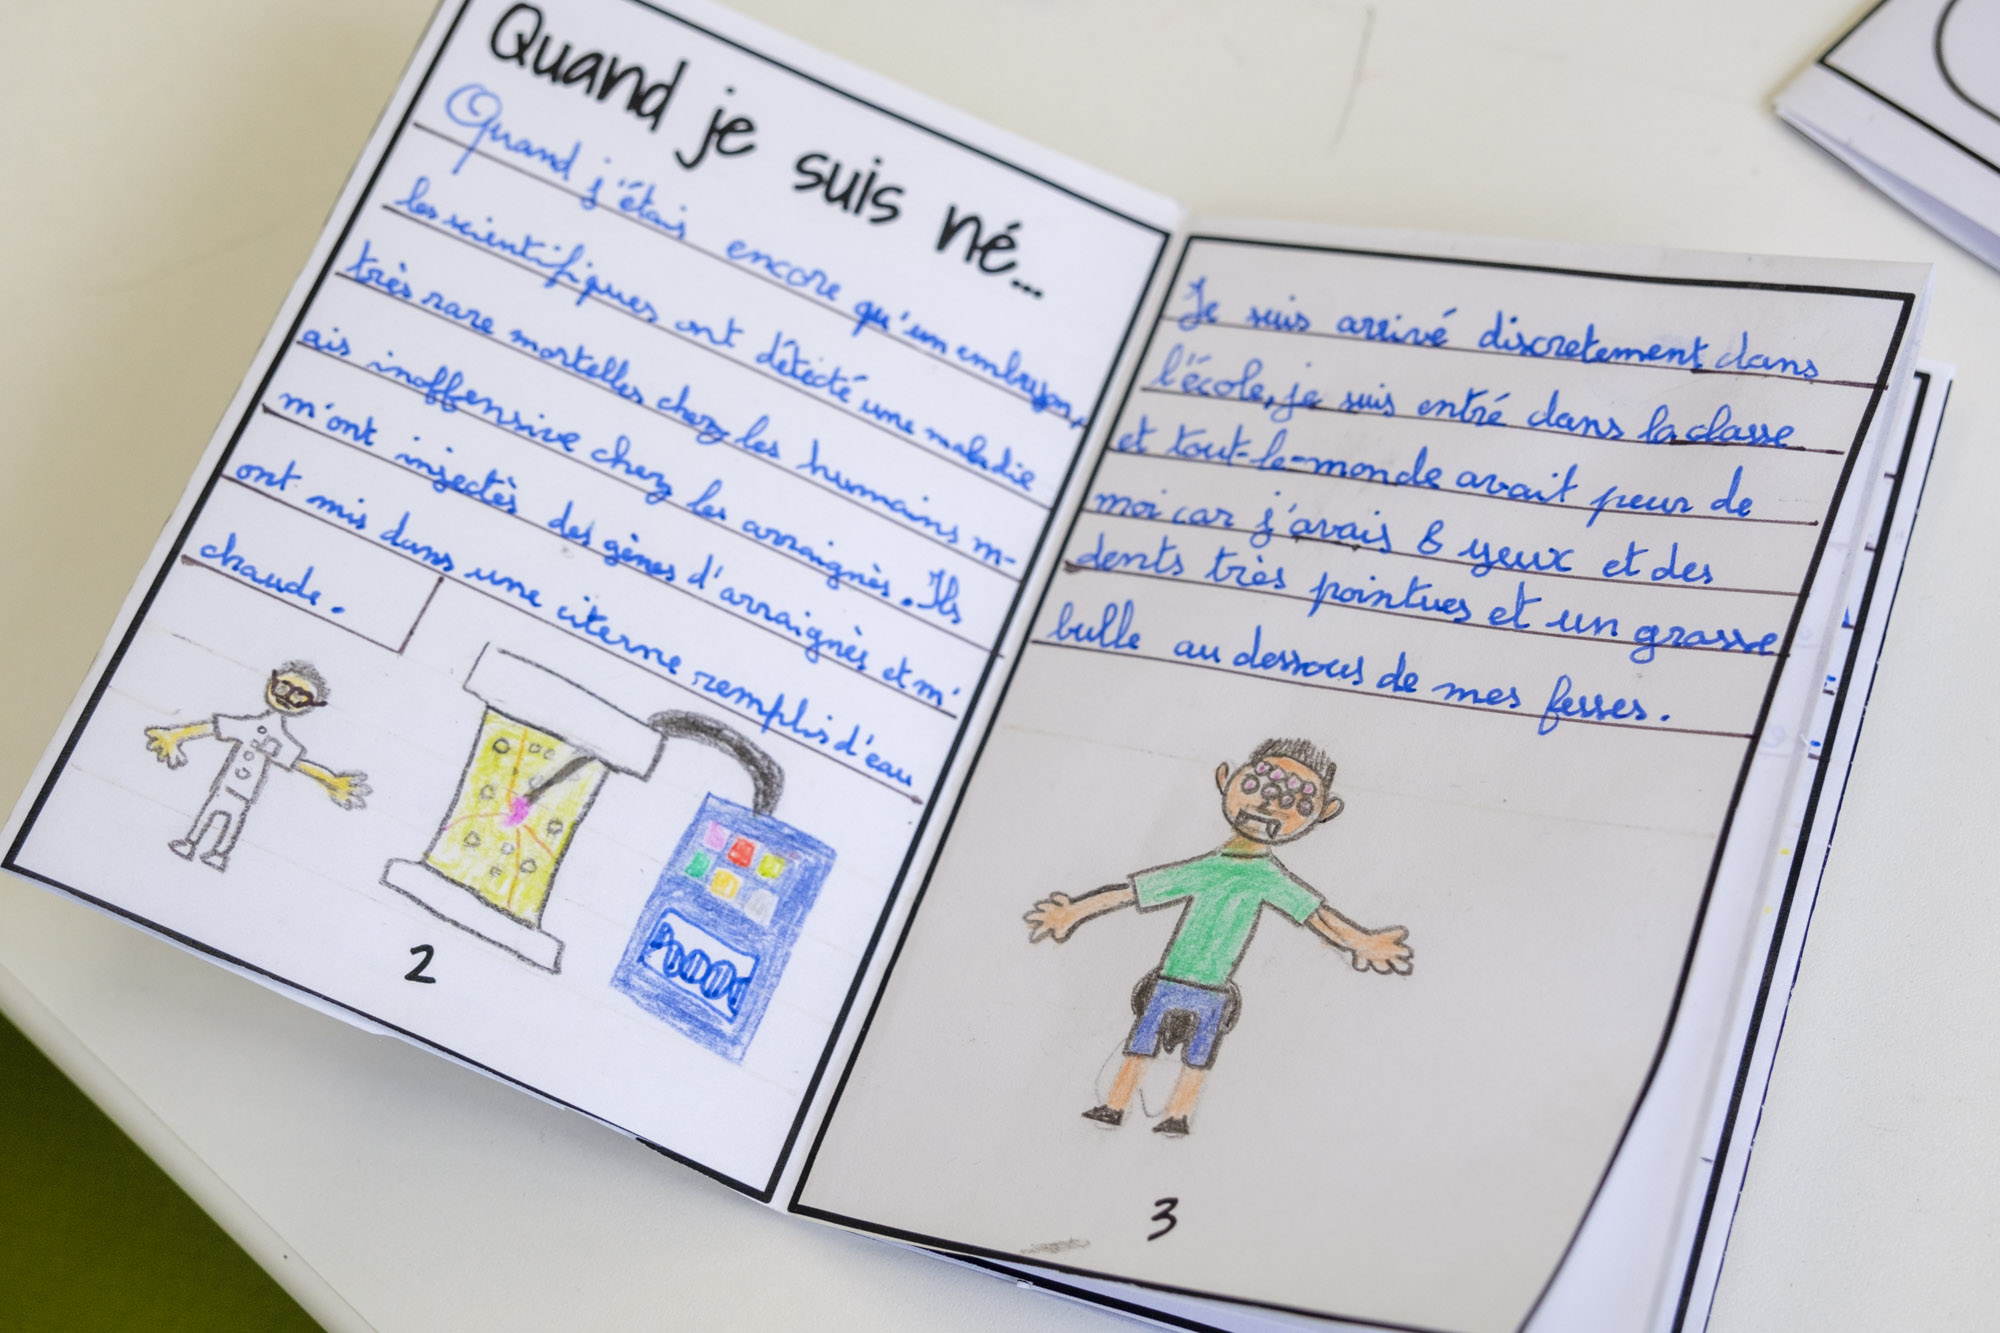 Quand je suis né...
Quand j'étais encore qu'un embryon,
les scientifiques ont détecté une maladie
très rare mortelles chez les humains m-
ais inoffensive chez les arraignès. Ils
m'ont injectès des gènes d'arraignès et m'
ont mis dans une citerne remplis d'eau
chaude.
2
Je suis arrivé discretement dans
l'école, je suis entré dans la classe
et tout-le-monde avait peur de
moi car j'avais 8 yeux et des
dents très pointues et un grasse
bulle au dessous de mes fesses.
3